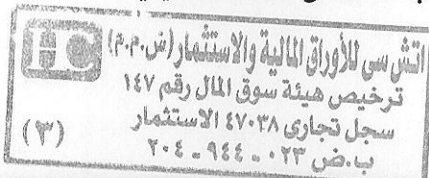 HC
اتش سى للأوراق المالية والاستثمار (ش.م.م)
ترخيص هيئة سوق المال رقم ١٤٧
سجل تجارى ٤٧٠٣٨ الاستثمار
ب.ض ٠٢٣ - ٩٤٤ - ٢٠٤
(٣)